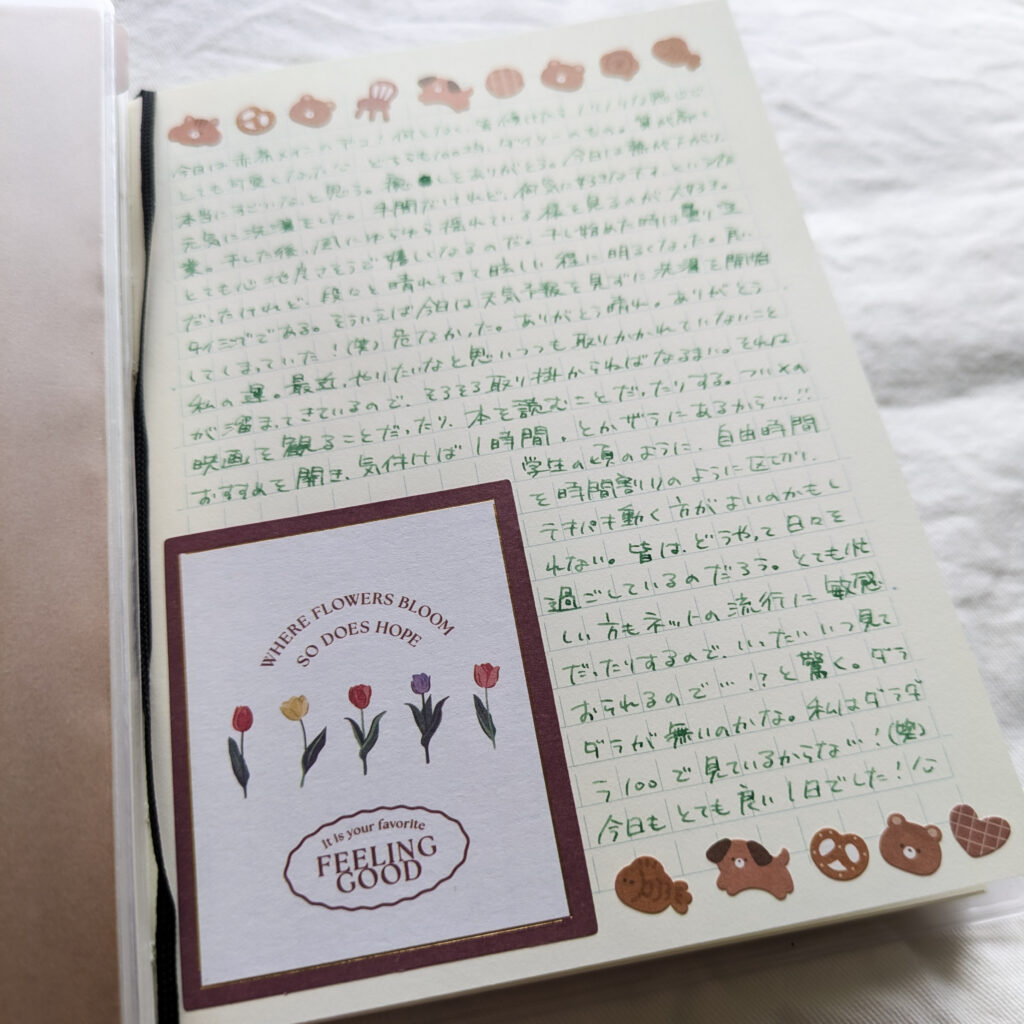 今日は赤茶メインのデコ！何となく、気付けたらノリノリな感じに
とても可愛くなった♡ どちらも100均、ダイソーのもの。質が高く
本当にすごいな、と思う。癒しをありがとう。今日は熱が下がり、
元気に洗濯をした。手間だけれど、何気に好きなんです、というな
業。干した後、風にゆらゆら揺れている様を見るのが大好き。
とても心地良さそうで嬉しくなるのだ。干し始めた時は曇り空
だったけれど、段々と晴れてきて眩しい程に明るくなった。良い
タイミングである。そういえば今日は天気予報を見ずに洗濯を開始
してしまっていた！(笑) 危なかった。ありがとう晴れ。ありがとう
私の運。最近、やりたいなと思いつつも取りかかれていないこと
が溜まってきているので、そろそろ取り掛からねばなるまい。それは
映画を観ることだったり、本を読むことだったりする。ついXの
おすすめを開き、気付けば1時間、とかザラにあるから…!!
学生の頃のように、自由時間
を時間割りのように区切り、
テキパキ動く方がよいのかもし
れない。皆は、どうやって日々を
過ごしているのだろう。とても忙
しい方もネットの流行に敏感
だったりするので、いったいいつ見て
おられるので…!?と驚く。ダラ
ダラが無いのかな。私はダラダ
ラ100で見ているからな…！(笑)
今日もとても良い1日でした！
WHERE FLOWERS BLOOM
SO DOES HOPE
It is your favorite
FEELING
GOOD